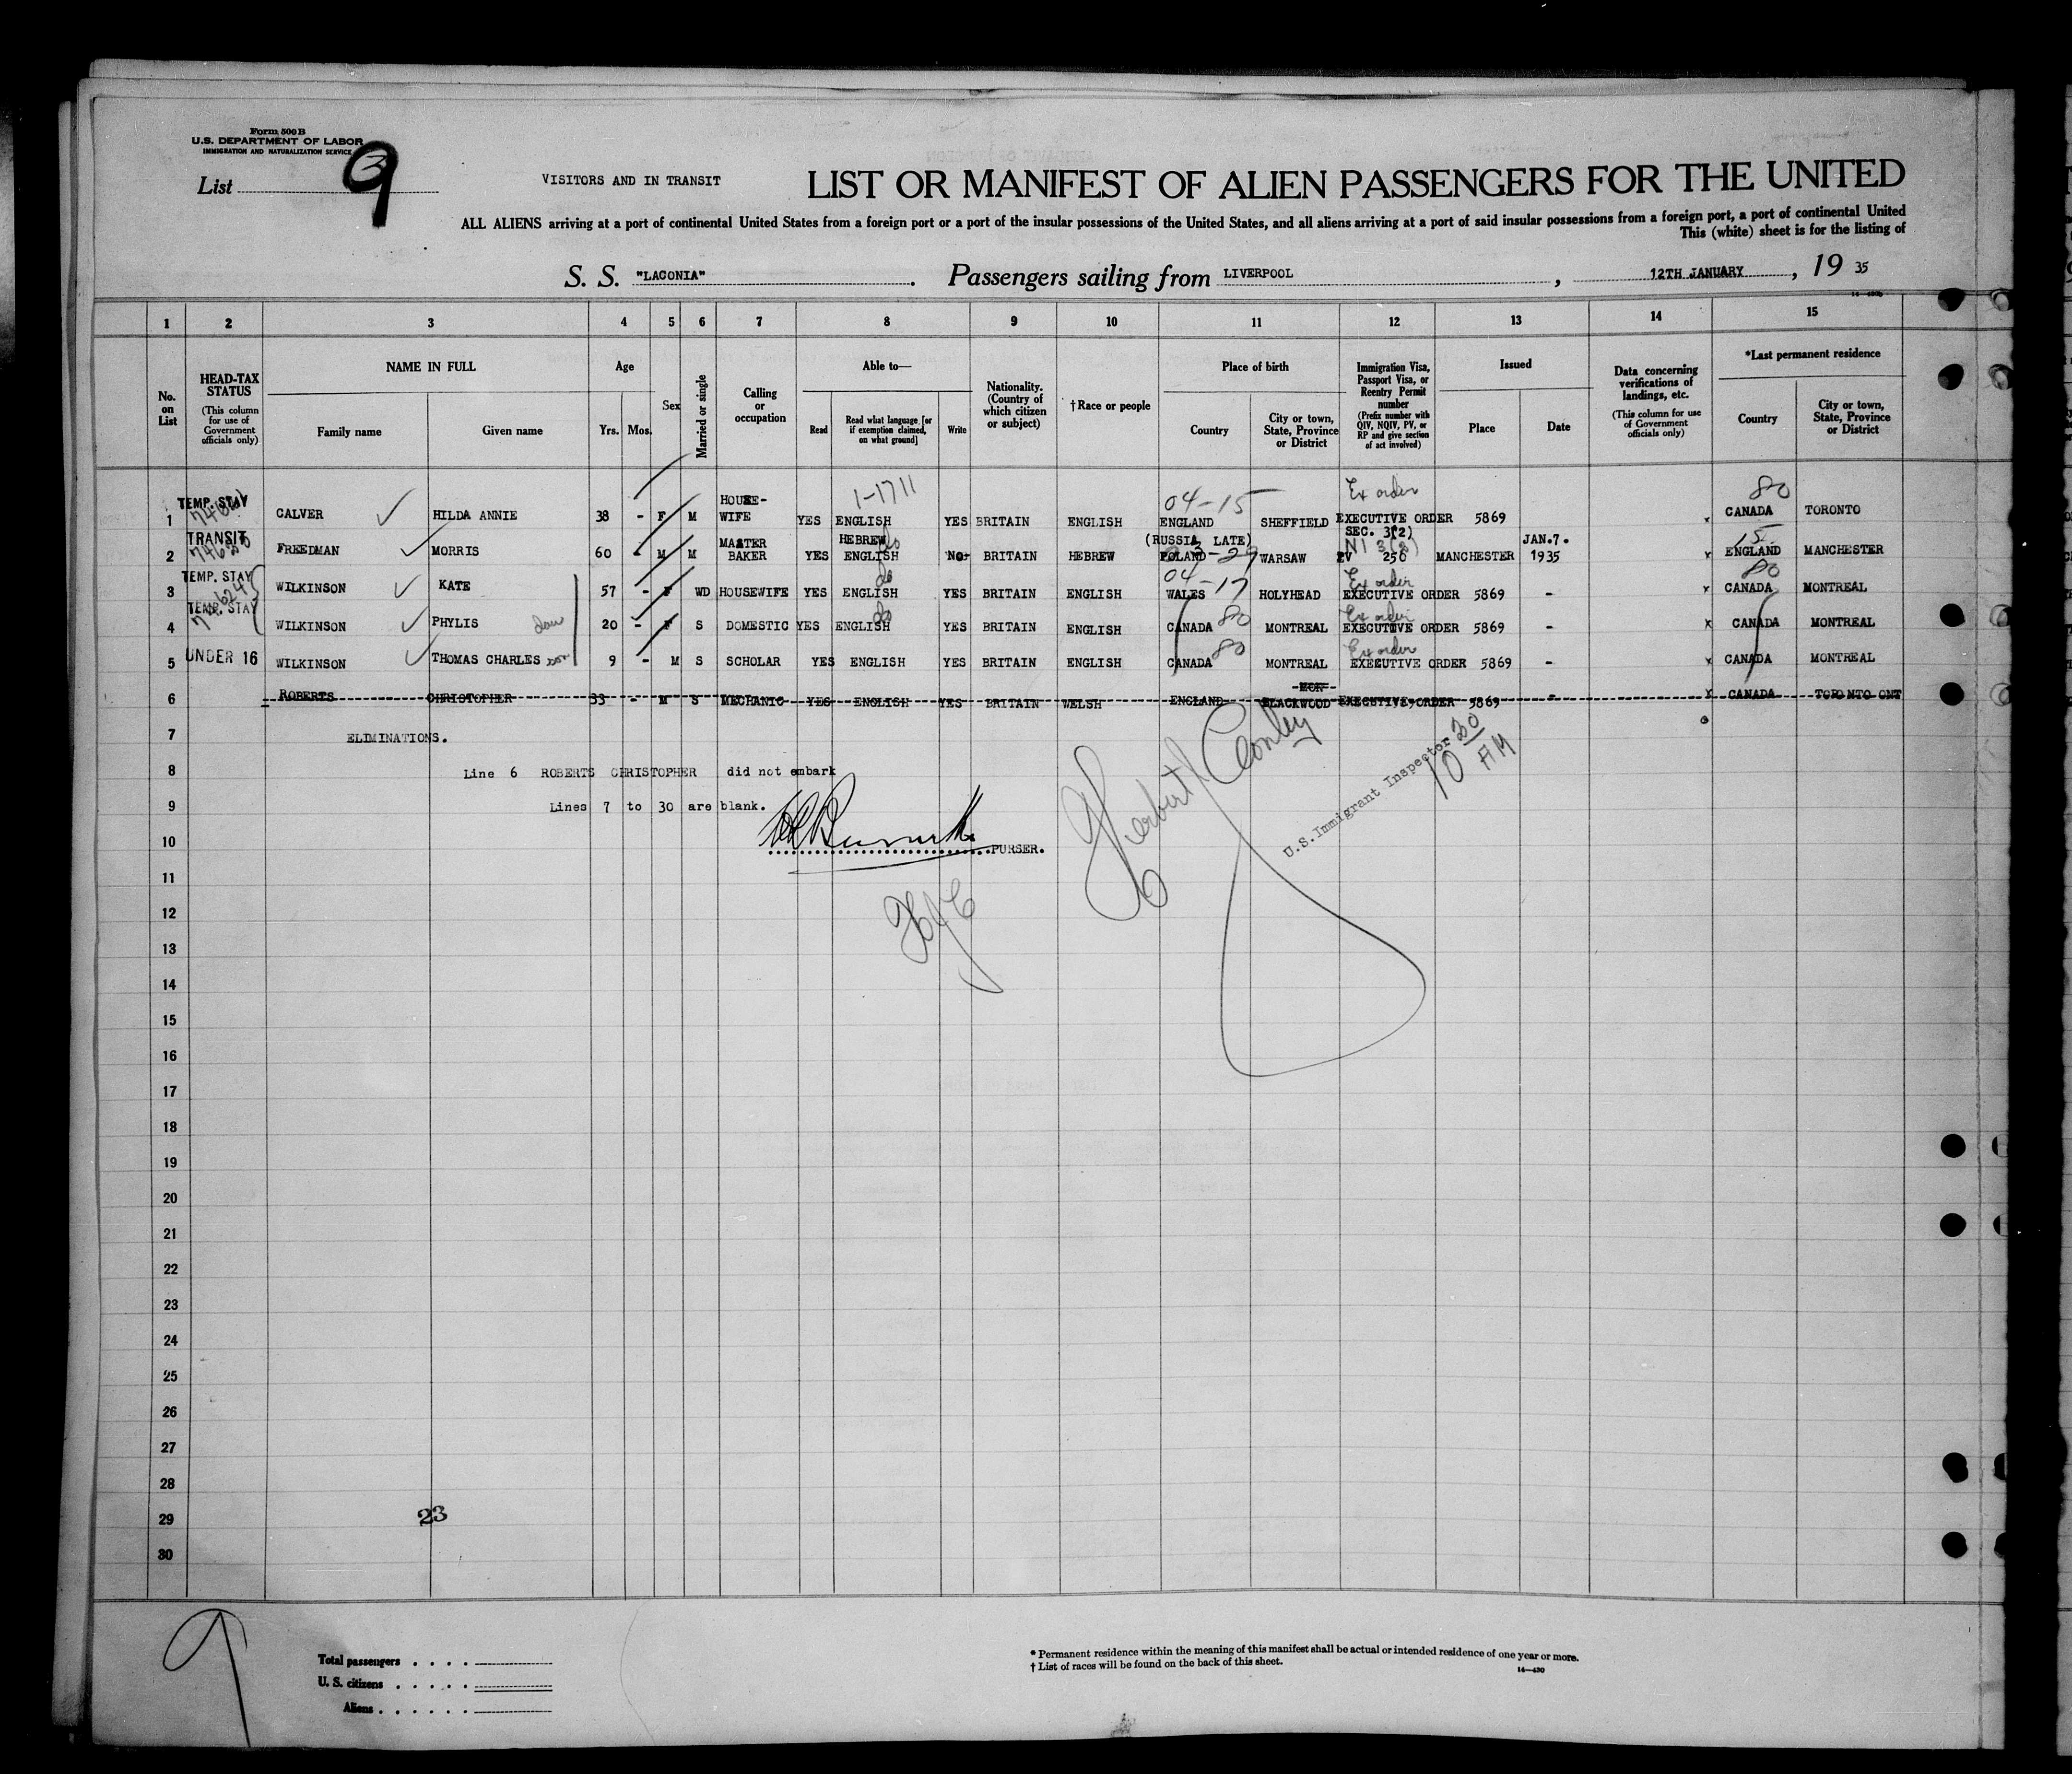 Form 500 B
U.S. DEPARTMENT OF LABOR
IMMIGRATION AND NATURALIZATION SERVICE
List 9
VISITORS AND IN TRANSIT
LIST OR MANIFEST OF ALIEN PASSENGERS FOR THE UNITED
ALL ALIENS arriving at a port of continental United States from a foreign port or a port of the insular possessions of the United States, and all aliens arriving at a port of said insular possessions from a foreign port, a port of continental United
This (white) sheet is for the listing of
S. S. "LACONIA". Passengers sailing from LIVERPOOL, 12TH JANUARY, 19 35
1 2 3 4 5 6 7 8 9 10 11 12 13 14 15
No. on List
HEAD-TAX STATUS (This column for use of Government officials only)
NAME IN FULL
Family name Given name
Age
Yrs. Mos.
Sex
Married or single
Calling or occupation
Able to—
Read Read what language [or if exemption claimed, on what ground] Write
Nationality. (Country of which citizen or subject)
†Race or people
Place of birth
Country City or town, State, Province or District
Immigration Visa, Passport Visa, or Reentry Permit number (Prefix number with QIV, NQIV, PV, or RP and give section of act involved)
Issued
Place Date
Data concerning verifications of landings, etc. (This column for use of Government officials only)
*Last permanent residence
Country City or town, State, Province or District
1-1711 04-15 Ex order 80
1 TEMP. STAY CALVER HILDA ANNIE 38 - F M HOUSE-WIFE YES ENGLISH YES BRITAIN ENGLISH ENGLAND SHEFFIELD EXECUTIVE ORDER 5869 x CANADA TORONTO
2 TRANSIT FREEDMAN MORRIS 60 - M M MASTER BAKER YES HEBREW ENGLISH No BRITAIN HEBREW (RUSSIA LATE) POLAND WARSAW SEC. 3(2) PV 256 MANCHESTER JAN.7. 1935 x 15 ENGLAND MANCHESTER
do 04-17 Ex order 80
3 TEMP. STAY WILKINSON KATE 57 - F WD HOUSEWIFE YES ENGLISH YES BRITAIN ENGLISH WALES HOLYHEAD EXECUTIVE ORDER 5869 - x CANADA MONTREAL
do 80 Ex order
4 TEMP. STAY WILKINSON PHYLIS dau 20 - F S DOMESTIC YES ENGLISH YES BRITAIN ENGLISH CANADA MONTREAL EXECUTIVE ORDER 5869 - x CANADA MONTREAL
80 Ex order
5 UNDER 16 WILKINSON THOMAS CHARLES son 9 - M S SCHOLAR YES ENGLISH YES BRITAIN ENGLISH CANADA MONTREAL EXECUTIVE ORDER 5869 - x CANADA MONTREAL
6 ROBERTS CHRISTOPHER 33 - M S MECHANIC YES ENGLISH YES BRITAIN WELSH ENGLAND -MON- BLACKWOOD EXECUTIVE ORDER 5869 - x CANADA TORONTO ONT
7 ELIMINATIONS.
8 Line 6 ROBERTS CHRISTOPHER did not embark
9 Lines 7 to 30 are blank.
10 PURSER.
Herbert Conley
U.S. Immigrant Inspector
10 30 AM
11
12
13
14
15
16
17
18
19
20
21
22
23
24
25
26
27
28
29
23
30
9
Total passengers
U. S. citizens
Aliens
* Permanent residence within the meaning of this manifest shall be actual or intended residence of one year or more.
† List of races will be found on the back of this sheet.
14—430